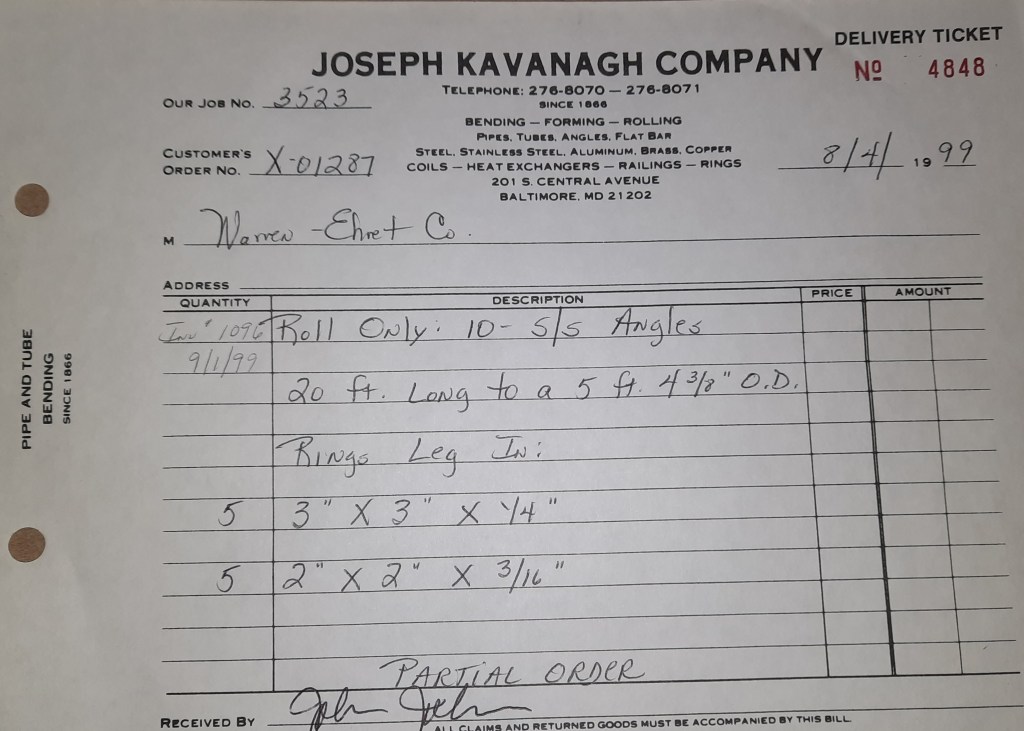 DELIVERY TICKET
JOSEPH KAVANAGH COMPANY
Nº 4848
TELEPHONE: 276-8070 — 276-8071
SINCE 1866
OUR JOB NO. 3523
BENDING — FORMING — ROLLING
PIPES, TUBES, ANGLES, FLAT BAR
STEEL, STAINLESS STEEL, ALUMINUM, BRASS, COPPER
CUSTOMER'S
ORDER NO. X-01287
COILS — HEAT EXCHANGERS — RAILINGS — RINGS
8/4/ 1999
201 S. CENTRAL AVENUE
BALTIMORE, MD 21202
M Warren-Ehret Co.
ADDRESS
QUANTITY DESCRIPTION PRICE AMOUNT
Inv # 1096 Roll Only: 10- S/S Angles
9/1/99
20 ft. Long to a 5 ft. 4 3/8" O.D.
Rings Leg In:
5 3" X 3" X 1/4"
5 2" X 2" X 3/16"
PARTIAL ORDER
RECEIVED BY John
ALL CLAIMS AND RETURNED GOODS MUST BE ACCOMPANIED BY THIS BILL
PIPE AND TUBE
BENDING
SINCE 1866